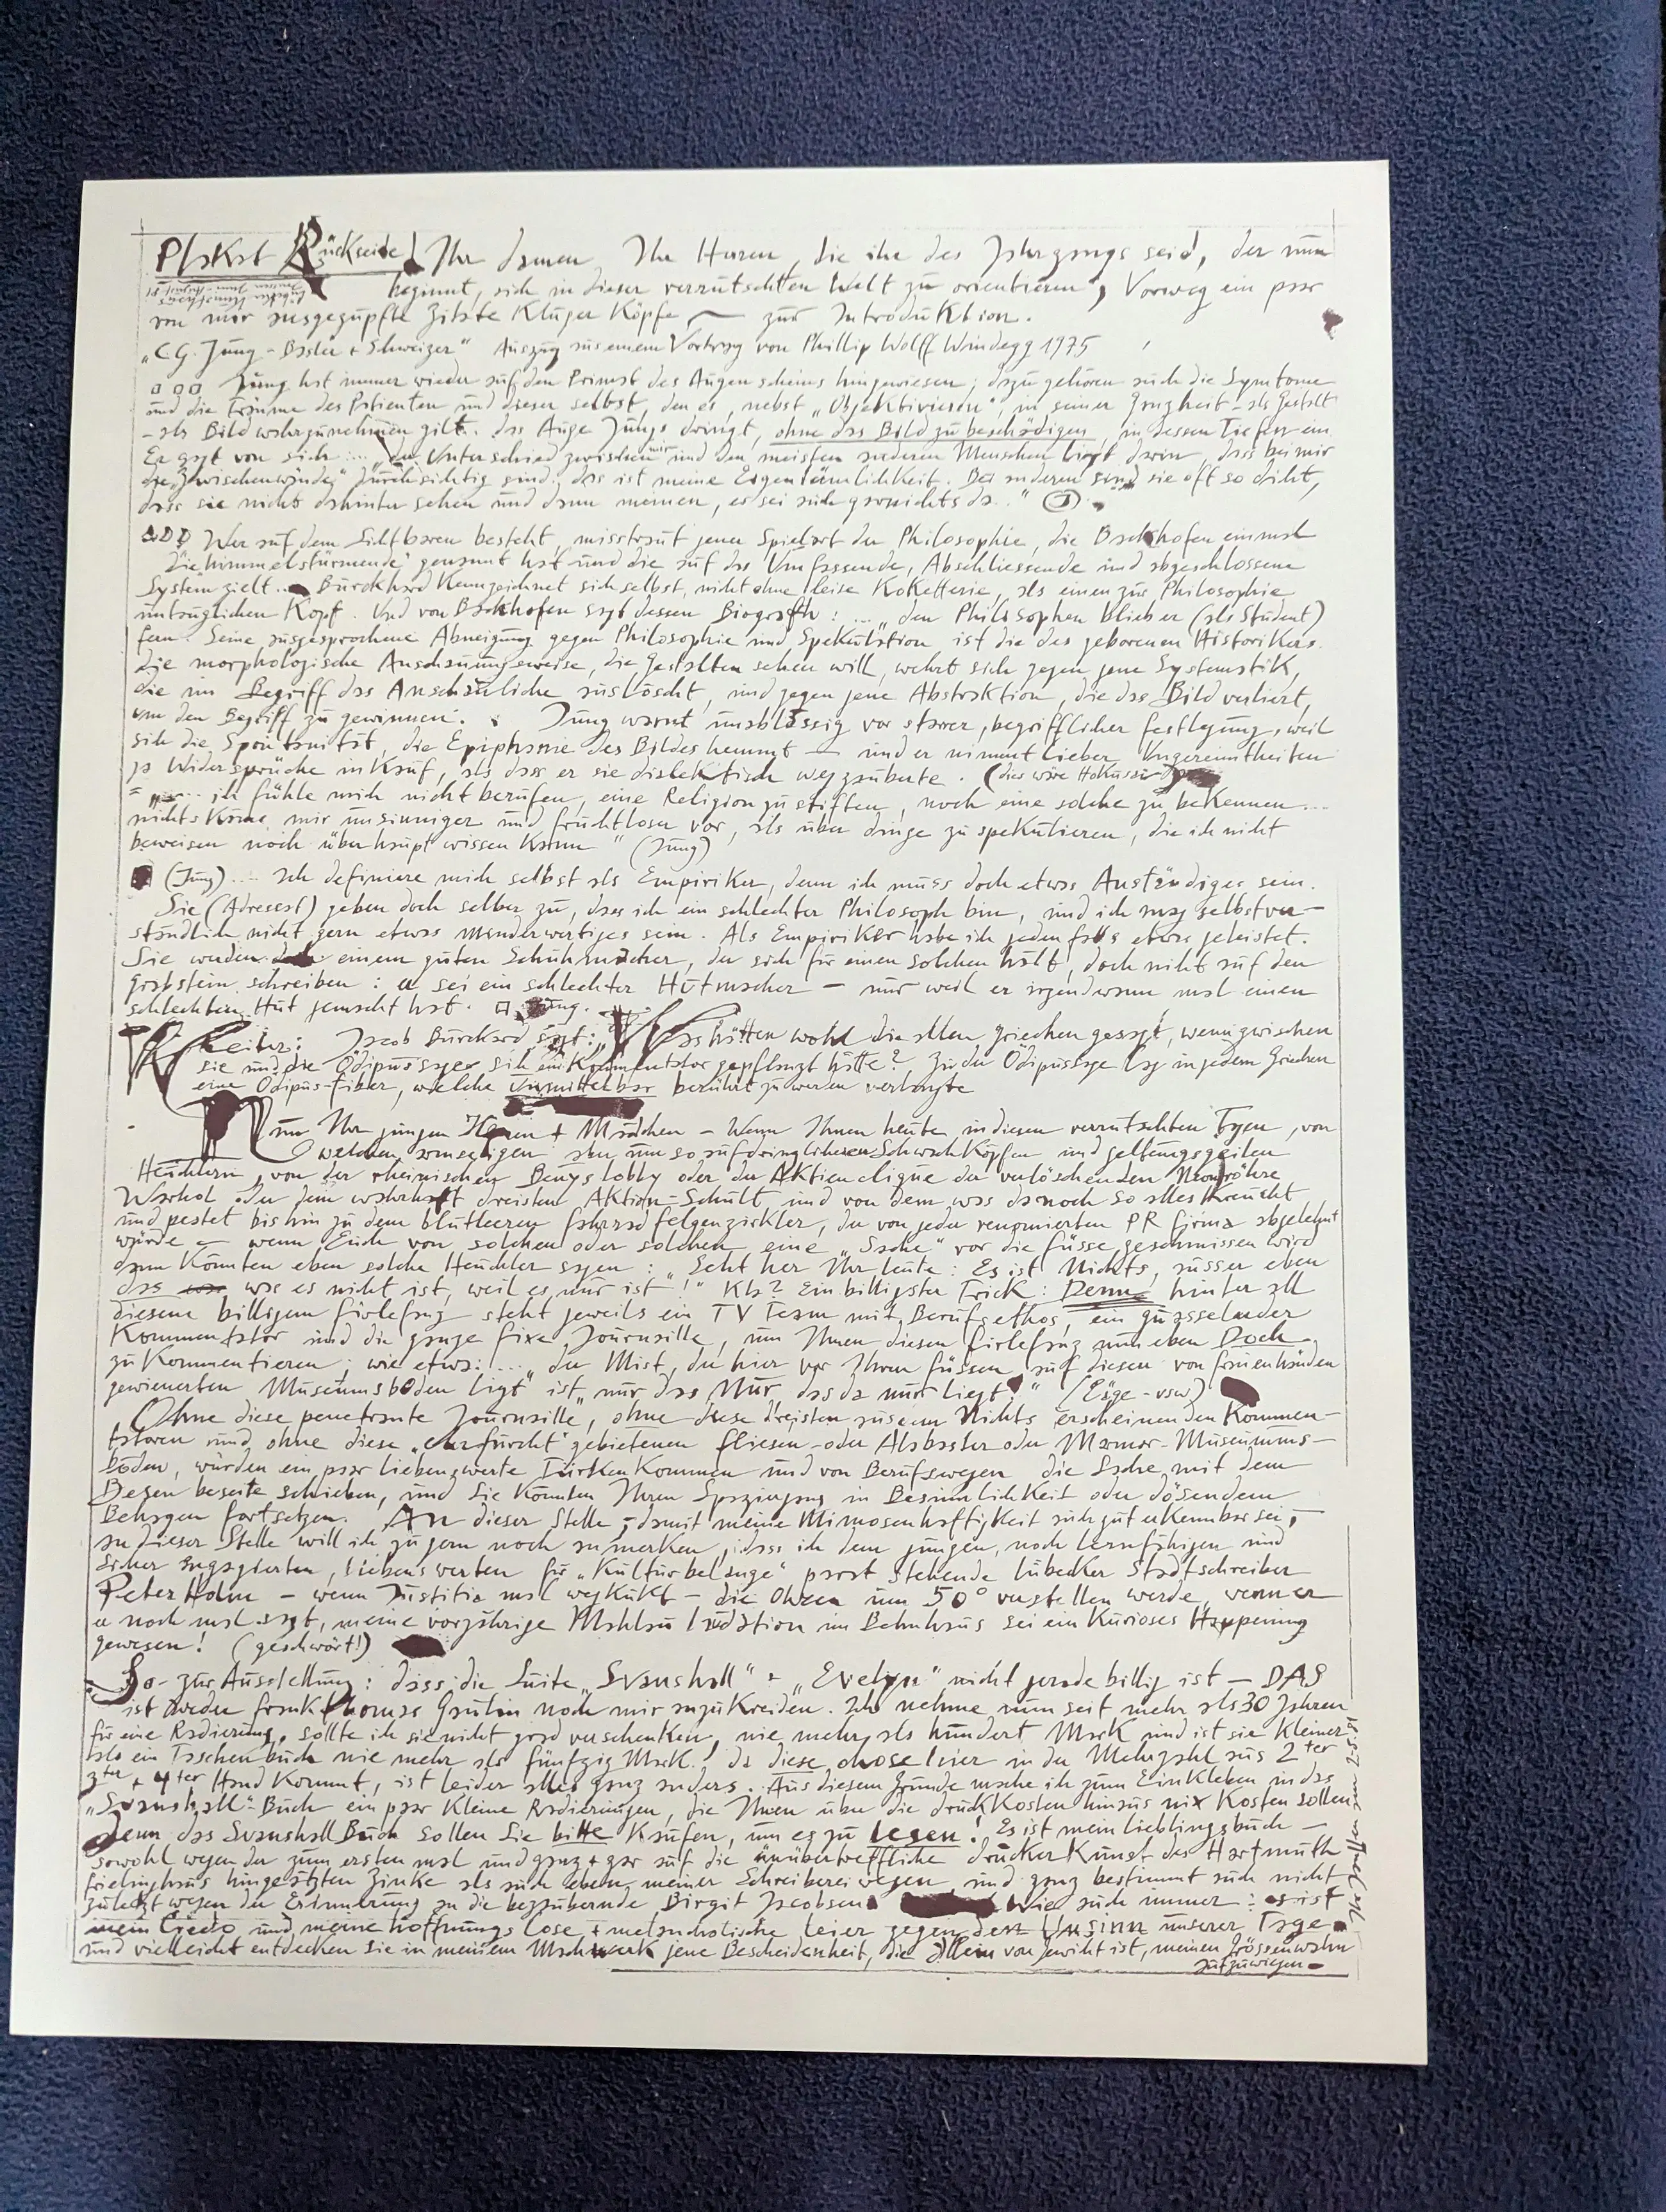 Plakat Rückseide! Ihr Damen, Ihr Herren, die ihr des Jahrgangs seid, der nun
beginnt, sich in dieser verrutschten Welt zu orientieren, Vorweg ein paar
von mir ausgezupfte Zitate Kluger Köpfe — zur Introduktion.
„C G. Jung – Basler + Schweizer" Auszug aus einem Vortrag von Phillip Wolff Windegg 1975
Jung hat immer wieder auf den Primat des Augenscheins hingewiesen; dazu gehören auch die Symtome
und die Träume des Patienten und dieser selbst, den es, nebst „Objektivieren", in seiner Ganzheit – als Gestalt
– als Bild wahrzunehmen gilt. das Auge Jungs dringt, ohne das Bild zu beschädigen, in dessen Tiefen ein.
Er sagt von sich .... „der Unterschied zwischen mir und den meisten anderen Menschen liegt darin, dass bei mir
die „Zwischenwände" durchsichtig sind, das ist meine Eigentümlichkeit. Bei anderen sind sie oft so dicht,
dass sie nichts dahinter sehen und dann meinen, es sei auch garnichts da.."
Wer auf dem Sichtbaren besteht, misstraut jener Spielart der Philosophie, die Bachhofen einmal
„die himmelstürmende" genannt hat und die auf das Umfassende, Abschliessende und abgeschlossene
System zielt.. Burckhard Kennzeichnet sich selbst, nicht ohne leise Koketterie, als einen zur Philosophie
untauglichen Kopf. Und von Bachhofen sagt dessen Biograth: ... „den Philosophen blieb er (als Student)
fern. Seine ausgesprochene Abneigung gegen Philosophie und Spekulation ist die des geborenen Historikers.
die morphologische Anschauungsweise, die Gestalten sehen will, wehrt sich gegen jene Systematik,
die im Begriff das Anschauliche auslöscht, und gegen jene Abstraktion, die das Bild verliert,
um den Begriff zu gewinnen. Jung warnt unablässig vor starrer, begrifflicher Festlegung, weil
sih die Spontanität, die Epiphanie des Bildes hemmt — und er nimmt lieber Ungereimtheiten
ja Widersprüche in Kauf, als dass er sie dialektisch wegzauberte. (dies wäre
= „.... ich fühle mich nicht berufen, eine Religion zu stiften, noch eine solche zu bekennen ....
nichts Käme mir unsinniger und fruchtloser vor, als über dinge zu spekulieren, die ich nicht
beweisen noch überhaupt wissen Kann" (Jung)
(Jung) .... Ich definiere mich selbst als Empiriker, denn ich muss doch etwas Anständiges sein.
Sie (Adresat) geben doch selber zu, dass ich ein schlechter Philosoph bin, und ich mag selbstver–
ständlich nicht gern etwas minderwertiges sein. Als Empiriker habe ich jedenfalls etwas geleistet.
Sie werden einem guten Schuhmacher, der sich für einen solchen hält, doch nicht auf den
Grabstein schreiben: er sei ein schlechter Hutmacher – nur weil er irgendwann mal einen
schlechten Hut gemacht hat. Jung.
Weiter: Jacob Burckard sagt: „Was hätten wohl die alten Griechen gesagt, wenn zwischen
sie und die Ödipussage sich ein Kommentator gepflanzt hätte? Zu der Ödipussage lag in jedem Griechen
eine Ödipus-fiber, welche unmittelbar berührt zu werden verlangte
Nun Ihr jungen Herren + Mädchen – Wenn Ihnen heute in diesen verrutschten Tagen, von
welchen armseligen aber um so aufdringlicheren Schwachköpfen und geltungsgeilen
Heuchlern, von der rheinischen Beuyslobby oder der Aktienclique der verlöschenden Neonröhre
Warhol oder dem wahrhaft dreisten Aktion-Schult und von dem was da noch so alles kreucht
und pestet bis hin zu dem blutleeren fahrradfelgenzirkler, der von jeder renomierten PR firma abgelehnt
würde – wenn Euch von solchen oder solchen eine „Sache" vor die füsse geschmissen wird
dann Könnten eben solche Heuchler sagen: „Seht her Ihr leute: Es ist Nichts, ausser eben
das was es nicht ist, weil es nur ist!" Kla? Ein billigster Trick: Denn hinter all
diesem billigem firlefanz steht jeweils ein TV Team mit Berufsethos, ein quasselnder
Kommentator und die ganze fixe Journaille, um Ihnen diesen firlefanz nun eben Doch
zu Kommentieren; wie etwa: ... „der Mist, der hier vor Ihren füssen auf diesen von frauenhänden
gewienerten Museumsboden ligt" ist „nur das Nur, das da nur liegt!" (Säge – usw)
Ohne diese penetrante „Journaille", ohne diese dreisten aus dem Nichts erscheinenden Kommen–
tatoren und ohne diese „ehrfurcht" gebietenen fliesen- oder Alabaster oder Marmor-Museumms–
böden, würden ein paar liebenswerte Türken Kommen und von Berufswegen die Sache mit dem
Besen beseite schieben, und Sie Könnten Ihren Spaziergang in Besinnlichkeit oder dösendem
Behagen fortsetzen. An dieser Stelle, damit meine Mimosenhaftigkeit auch gut erkennbar sei,
an dieser Stelle will ich zu gern noch anmerken, dass ich dem jungen, noch lernfähigen und
sicher engagierten, liebenswerten für „Kulturbelange" parat stehende lübecker Stadtschreiber
Peter Holm – wenn Justitia mal wegkukt – die Ohren um 50° verstellen werde, wenn er
er noch mal sagt, meine vorjährige Mahlau laudation im Behnhaus sei ein Kurioses Happening
gewesen! (geschwört!)
So- zur Ausstellung: dass die Suite „Svanshall" + „Evelyn" nicht gerade billig ist — DAS
ist weder frank Thomas Gaulin noch mir anzukreiden. Ich nehme nun seit mehr als 30 Jahren
für eine Radierung, sollte ich sie nicht grad verschenken, nie mehr als hundert Mark und ist sie Kleiner
als ein Taschenbuch nie mehr als fünfzig Mark! da diese chose hier in der Mehrzahl aus 2ter
3ter + 4ter Hand Kommt, ist leider alles ganz anders. Aus diesem Grunde mache ich zum Einkleben in das
„Svanshall"-Buch ein paar Kleine Radierungen, die Ihnen über die druckkosten hinaus nix Kosten sollen
denn das Svanshall Buch sollen Sie bitte Kaufen, um es zu lesen! Es ist mein lieblingsbuch –
sowohl wegen der zum ersten mal und ganz + gar auf die unübertreffliche drucker Kunst des Hartmuth
frielinghaus hingeätzten Zinke als auch eben meiner Schreiberei wegen, und ganz bestimmt auch nicht
zuletzt wegen der Erinnerung an die bezaubernde Birgit Jacobsen. Wie auch immer: es ist
mein Credo und meine hoffnungslose + melancholische leier gegen den Unsinn unserer Tage
und vielleicht entdecken Sie in meinem Machwerk jene Bescheidenheit, die allein von Gewicht ist, meinen Grössenwahn
aufzuwiegen –